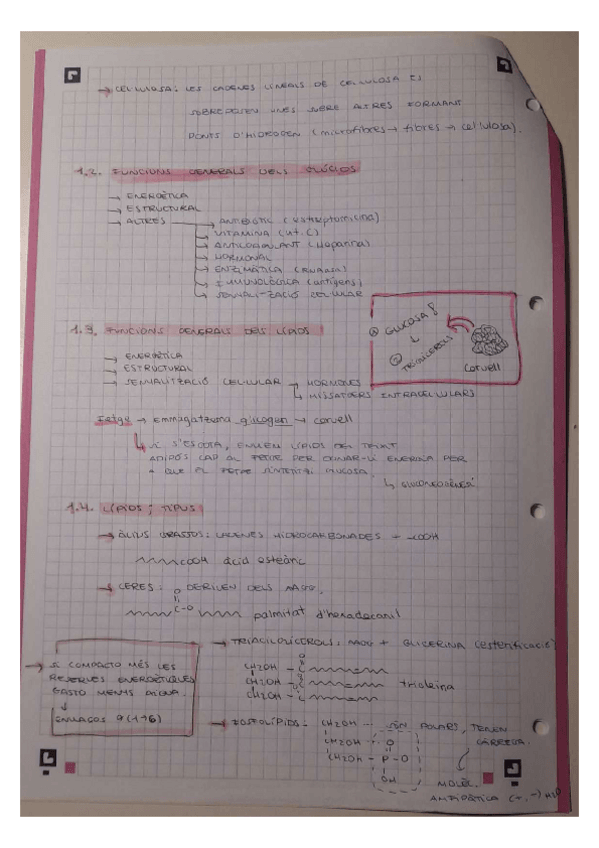 → CEL·LULOSA: LES CADENES LINEALS DE CEL·LULOSA ES
SOBREPOSEN UNES SOBRE ALTRES FORMANT
PONTS D'HIDROGEN (microfibres → fibres → cel·lulosa).
1.2. FUNCIONS GENERALS DELS GLÚCIDS
→ ENERGÈTICA
→ ESTRUCTURAL
→ ALTRES → ANTIBIÒTIC (estreptomicina)
→ VITAMINA (vit. C)
→ ANTICOAGULANT (Heparina)
→ HORMONAL
→ ENZIMÀTICA
→ IMMUNOLÒGICA (antígens)
→ SENYALITZACIÓ CEL·LULAR
1.3. FUNCIONS GENERALS DELS LÍPIDS
① GLUCOSA
② TRIGLICEROLS
Cervell
→ ENERGÈTICA
→ ESTRUCTURAL
→ SENYALITZACIÓ CEL·LULAR → HORMONES
→ MISSATGERS INTRACEL·LULARS
Fetge → Emmagatzema glicogen → cervell
↳ SI S'ESGOTA, ENVIEM LÍPIDS DEL TEIXIT
ADIPÓS CAP AL FETGE PER DONAR-LI ENERGIA PER
QUE EL FETGE SINTETITZI GLUCOSA.
↳ GLUCONEOGÈNESI
1.4. LÍPIDS; TIPUS
→ ÀCIDS GRASSOS: CADENES HIDROCARBONADES + -COOH
COOH àcid esteàric
→ CERES: DERIVEN DELS
O
C-O palmitat d'hexadecanil
→ TRIACILGLICEROLS: + GLICERINA (esterificació)
CH2OH - C
CH2OH - C trioleina
CH2OH - C
→ SI COMPACTO MÉS LES
RESERVES ENERGÈTIQUES
GASTO MENYS AIGUA.
↓
ENLLAÇOS α(1→6)
→ FOSFOLÍPIDS - CH2OH - SÓN POLARS, TENEN
CÀRREGA.
CH2OH - O
CH2OH - P - O
OH
MOLÈC.
ANFIPÀTICA (+, -) H2O